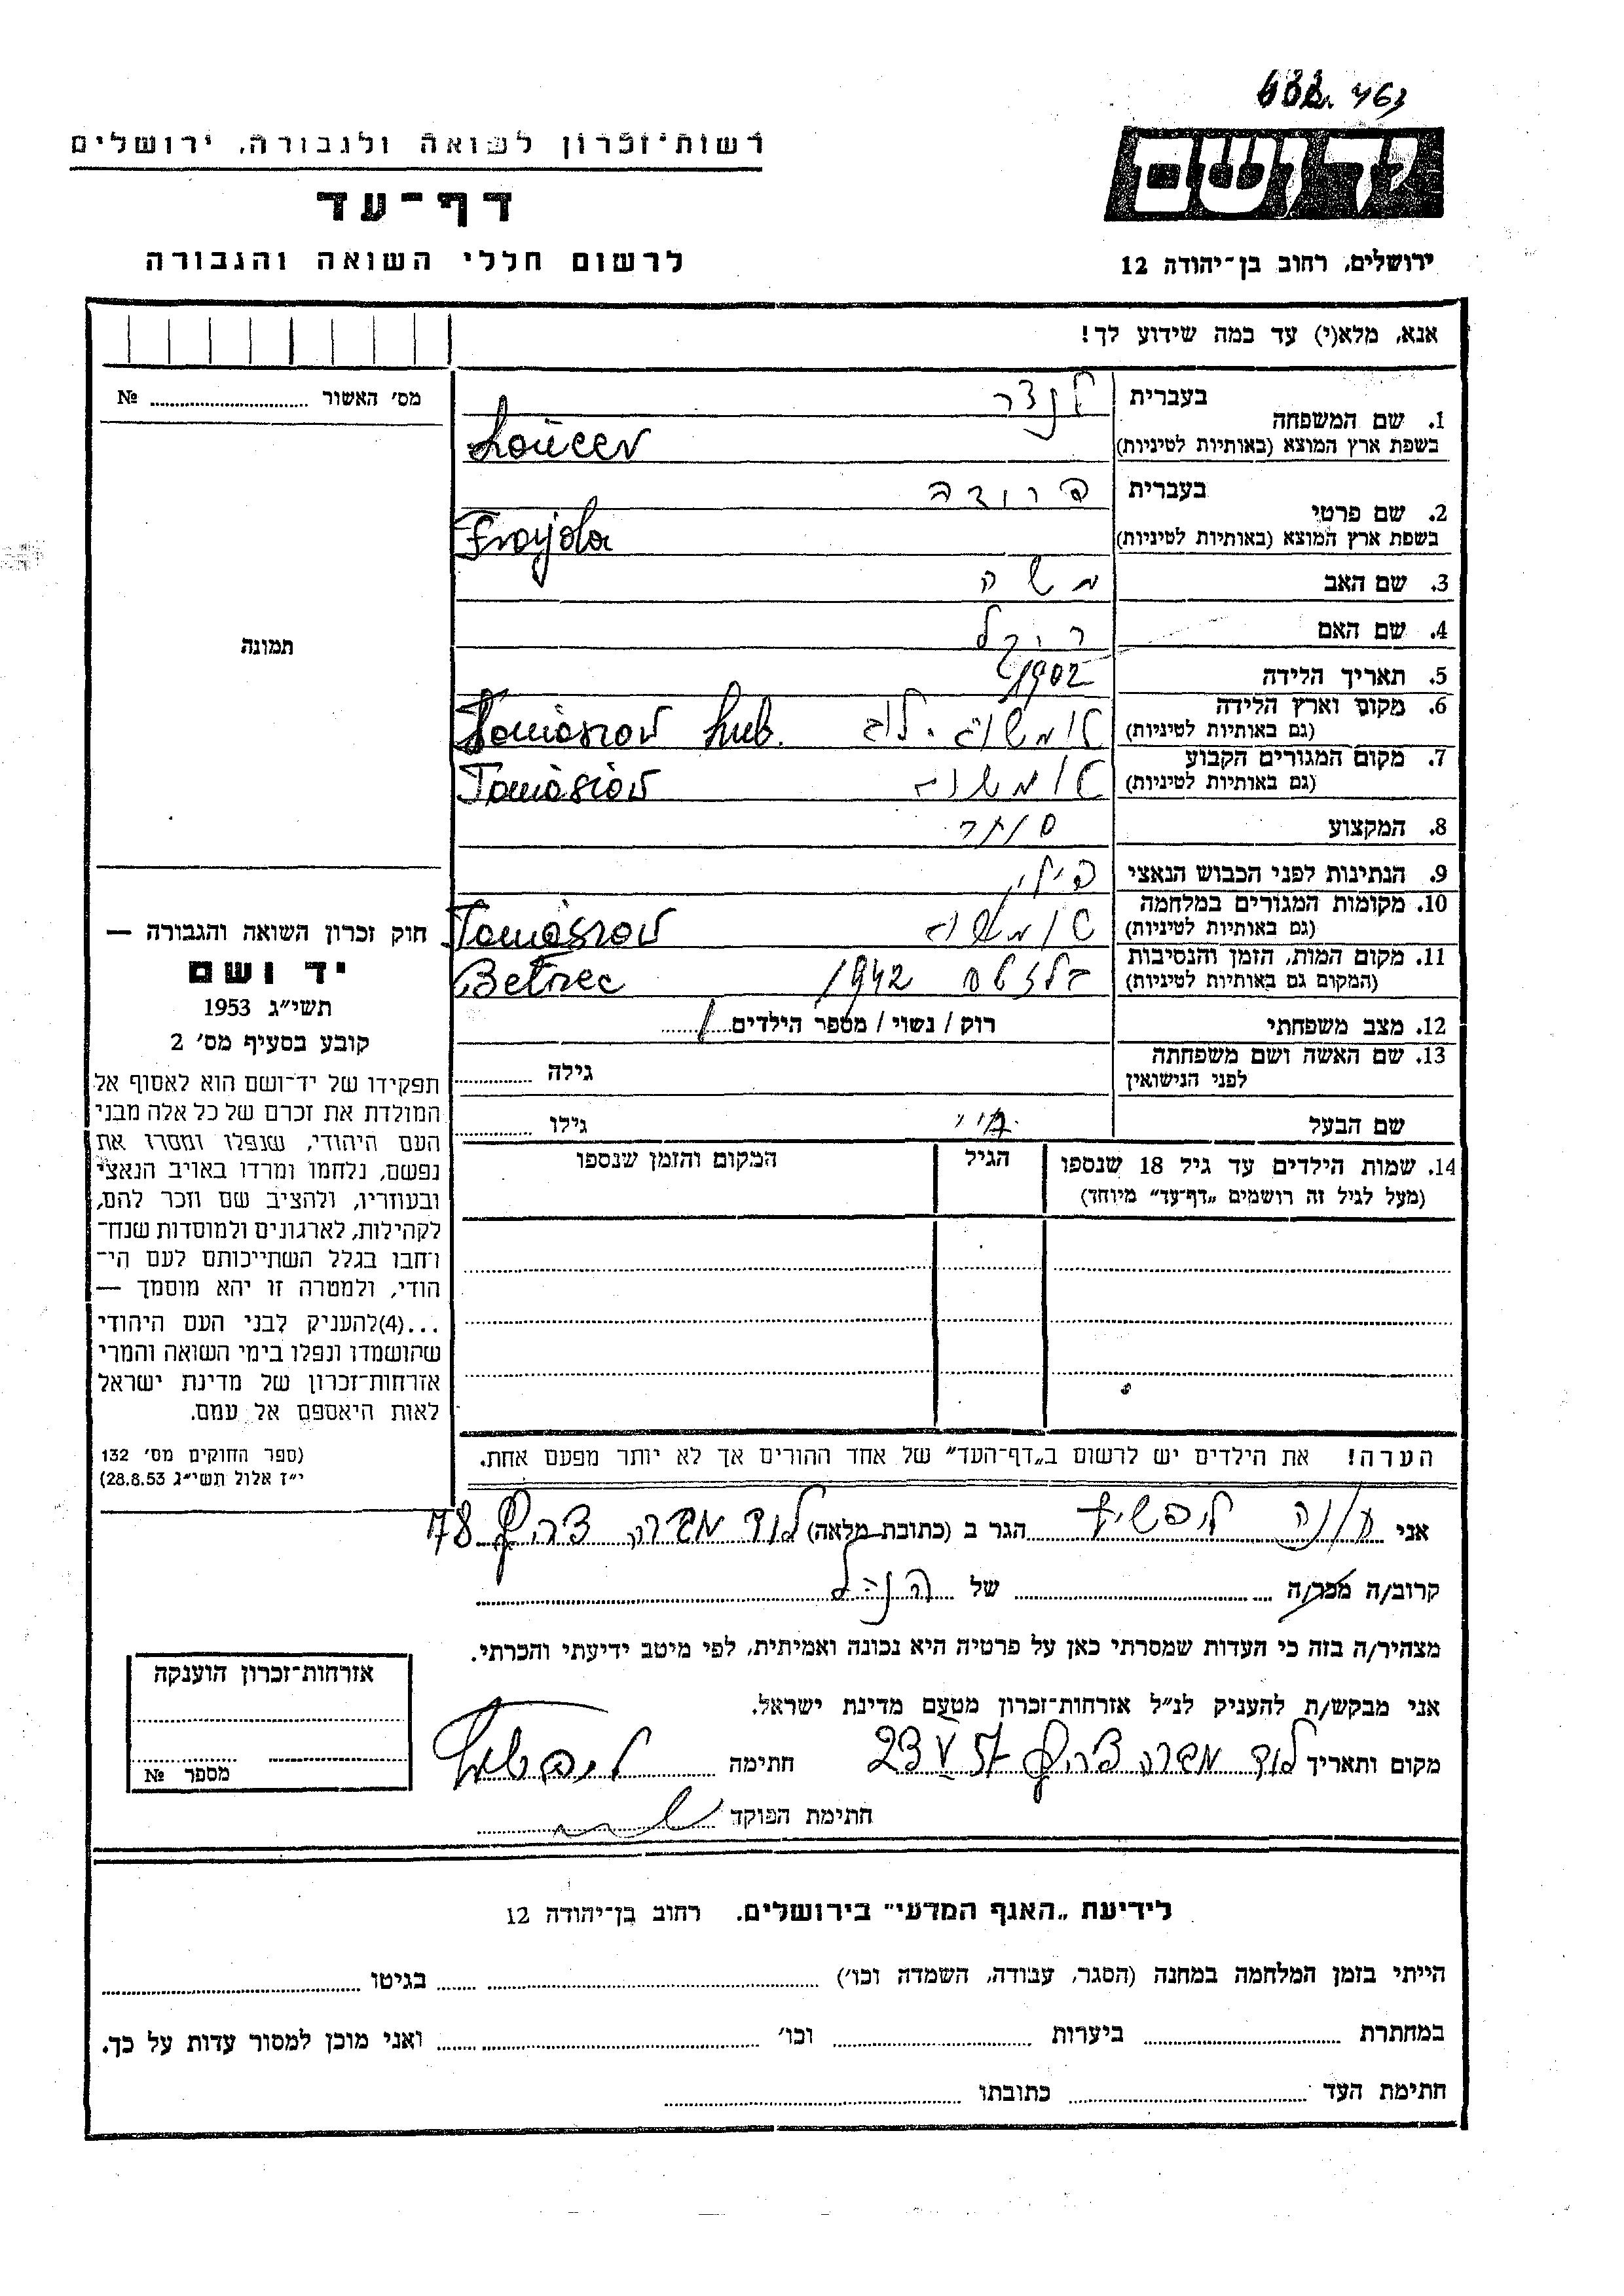 רשות־זכרון לשואה ולגבורה, ירושלים
יד ושם
דף־עד
לרשום חללי השואה והגבורה
ירושלים, רחוב בן־יהודה 12
אנא, מלא(י) עד כמה שידוע לך!
מס׳ האשור № 
1. שם המשפחה
בעברית
בשפת ארץ המוצא (באותיות לטיניות)
2. שם פרטי
בעברית
בשפת ארץ המוצא (באותיות לטיניות)
Frajda
3. שם האב משה
4. שם האם
5. תאריך הלידה 1902
6. מקום וארץ הלידה
(גם באותיות לטיניות)
Tomaszow Lub.
7. מקום המגורים הקבוע
(גם באותיות לטיניות)
Tomaszow
8. המקצוע סוחר
9. הנתינות לפני הכבוש הנאצי
10. מקומות המגורים במלחמה
(גם באותיות לטיניות)
Tomaszow
11. מקום המות, הזמן והנסיבות
(המקום גם באותיות לטיניות)
1942 Bełzec
12. מצב משפחתי רוק / נשוי / מספר הילדים
13. שם האשה ושם משפחתה
לפני הנישואין
גילה
שם הבעל
גילו
14. שמות הילדים עד גיל 18 שנספו
(מעל לגיל זה רושמים „דף־עד״ מיוחד)
הגיל
המקום והזמן שנספו
הערה! את הילדים יש לרשום ב„דף־העד״ של אחד ההורים אך לא יותר מפעם אחת.
תמונה
חוק זכרון השואה והגבורה —
יד ושם
תשי״ג 1953
קובע בסעיף מס׳ 2
תפקידו של יד־ושם הוא לאסוף אל
המולדת את זכרם של כל אלה מבני
העם היהודי, שנפלו ומסרו את
נפשם, נלחמו ומרדו באויב הנאצי
ובעוזריו, ולהציב שם וזכר להם,
לקהילות, לארגונים ולמוסדות שנח־
רבו בגלל השתייכותם לעם הי־
הודי, ולמטרה זו יהא מוסמך —
...(4)להעניק לבני העם היהודי
שהושמדו ונפלו בימי השואה והמרי
אזרחות־זכרון של מדינת ישראל
לאות היאספם אל עמם.
(ספר החוקים מס׳ 132
י״ז אלול תשי״ג 28.8.53)
אני ליפשיץ הגר ב (כתובת מלאה) לוד 78
קרוב/ה מכר/ה של הנ״ל
מצהיר/ה בזה כי העדות שמסרתי כאן על פרטיה היא נכונה ואמיתית, לפי מיטב ידיעתי והכרתי.
אני מבקש/ת להעניק לנ״ל אזרחות־זכרון מטעם מדינת ישראל.
מקום ותאריך לוד 23 V 57 חתימה
חתימת הפוקד
אזרחות־זכרון הוענקה
מספר №
לידיעת „האגף המדעי״ בירושלים. רחוב בן־יהודה 12
הייתי בזמן המלחמה במחנה (הסגר, עבודה, השמדה וכו׳) בגיטו
במחתרת ביערות וכו׳ ואני מוכן למסור עדות על כך.
חתימת העד כתובתו